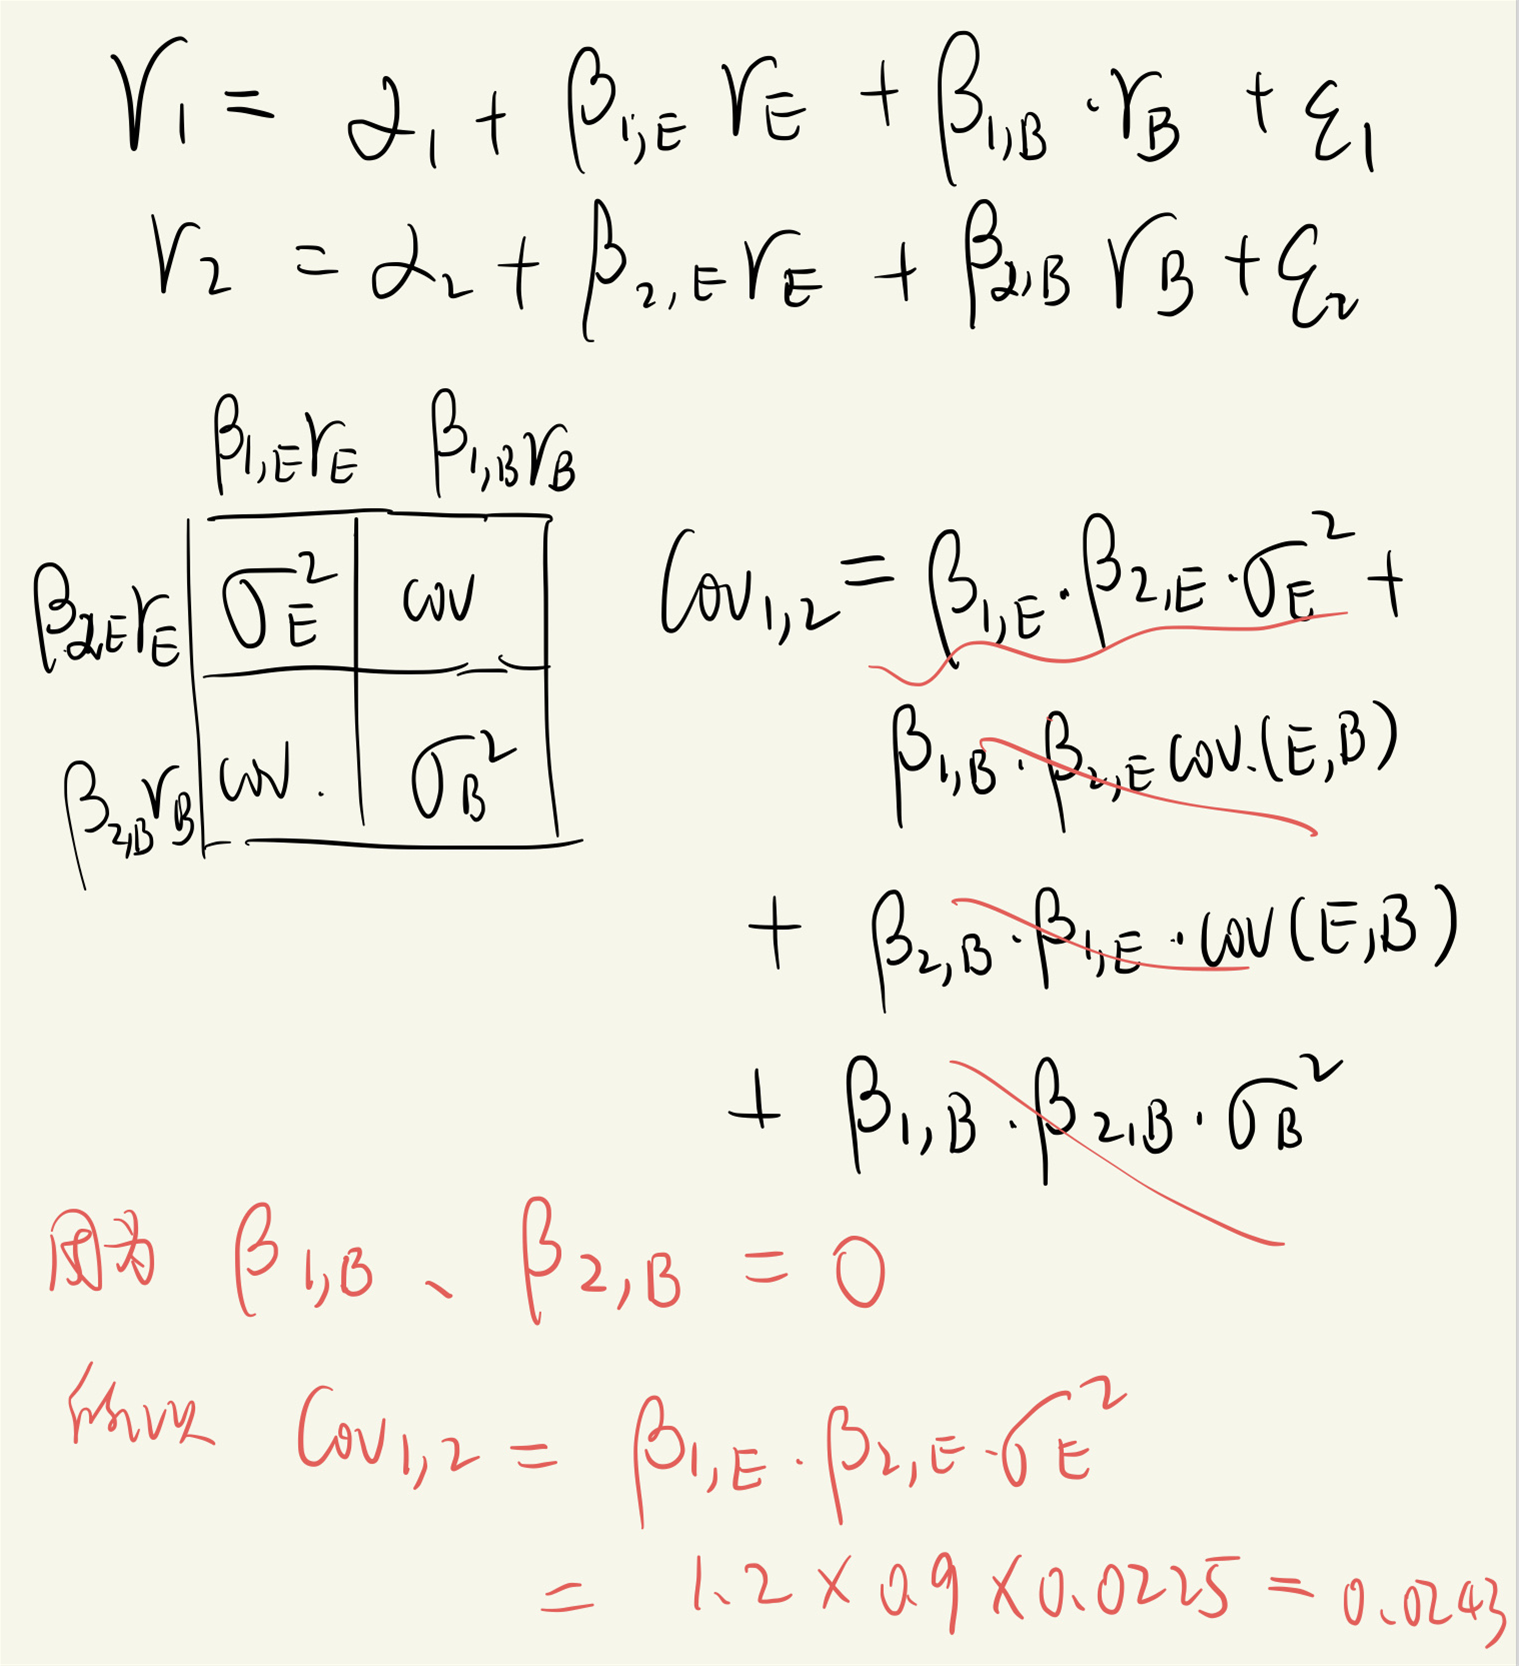 r₁ = α₁ + β₁,E rE + β₁,B · rB + ε₁
r₂ = α₂ + β₂,E rE + β₂,B rB + ε₂
β₁,E rE β₁,B rB
β₂,E rE σE² cov
β₂,B rB cov. σB²
Cov₁,₂ = β₁,E · β₂,E · σE² +
β₁,B · β₂,E cov.(E,B)
+ β₂,B · β₁,E · cov(E,B)
+ β₁,B · β₂,B · σB²
因为 β₁,B、β₂,B = 0
所以 Cov₁,₂ = β₁,E · β₂,E · σE²
= 1.2 × 0.9 × 0.0225 = 0.0243